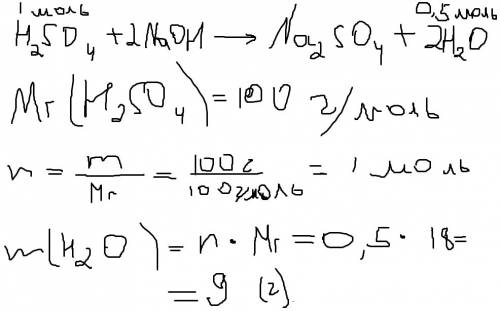 1 моль 0,5 моль
H₂SO₄ + 2NaOH → Na₂SO₄ + 2H₂O
Mr(H₂SO₄) = 100 г/моль
n = m/Mr = 100г/100г/моль = 1 моль
m(H₂O) = n · Mr = 0,5 · 18 =
= 9 (г)